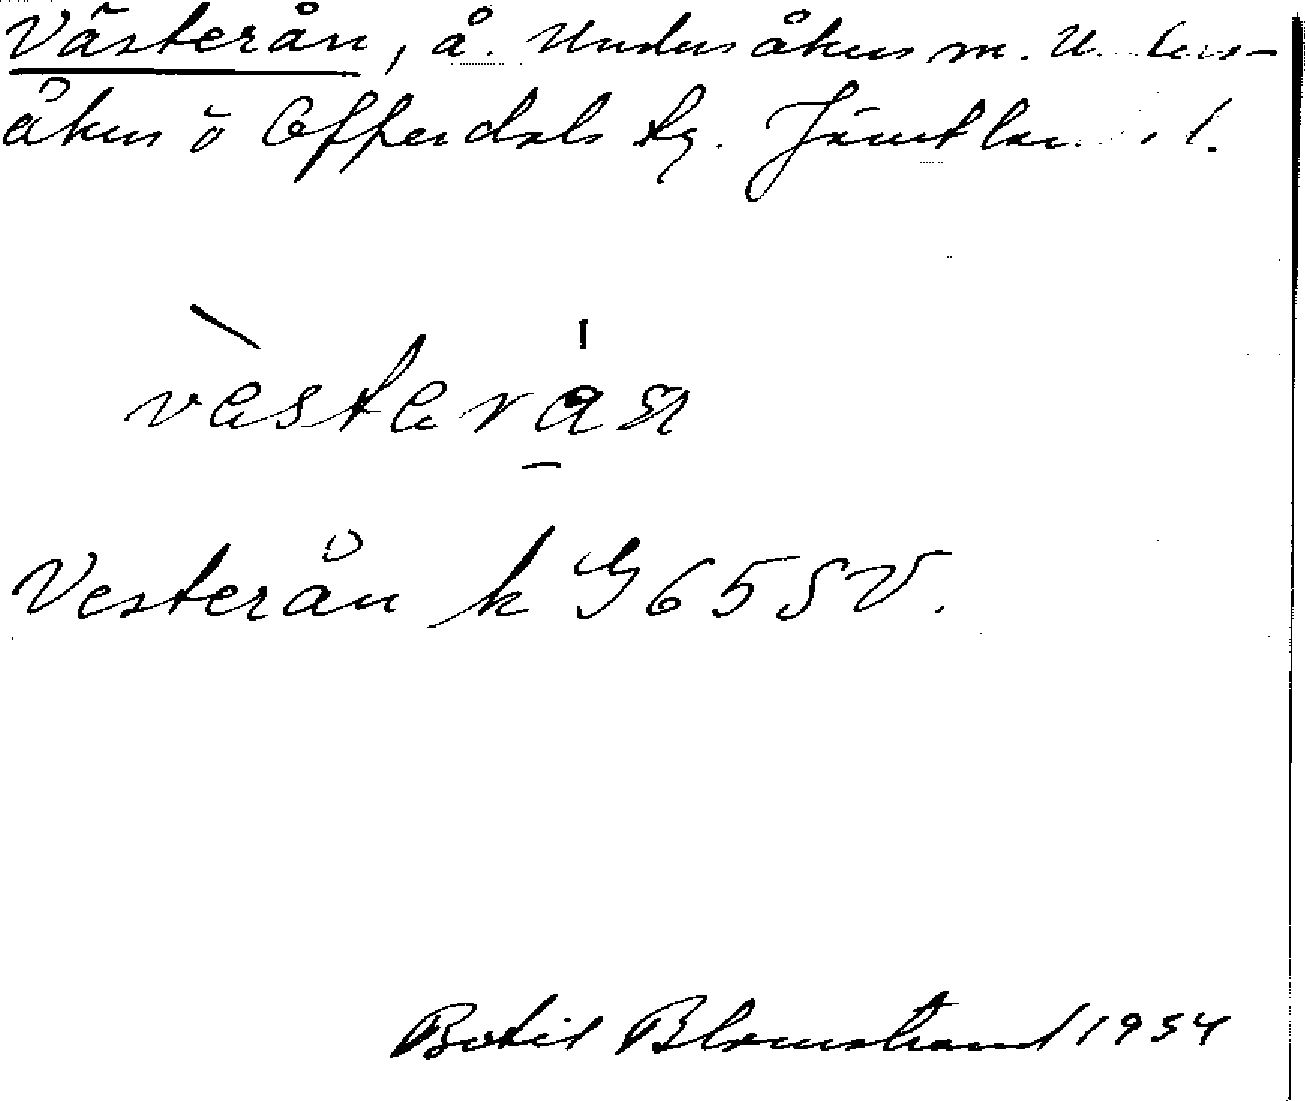 Västerån, å. Undersåkers m. Unders-
åkers o Offerdals tg. Jämtlands l.
västerån
Vesterån k G 65 SV.
Botil Blomstrand 1934